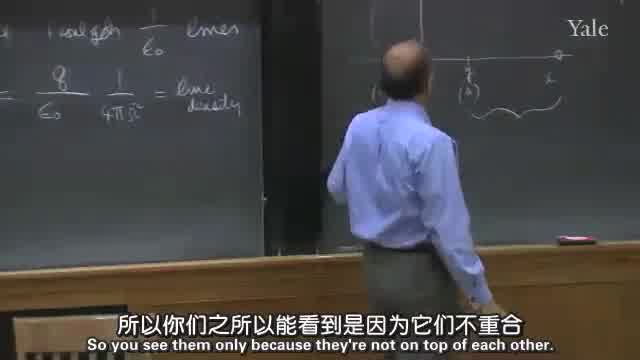 1 coul gets 1/ε₀ lines
= q/ε₀ 1/4πr² = line density
Yale
q
(a)
x
所以你们之所以能看到是因为它们不重合
So you see them only because they're not on top of each other.